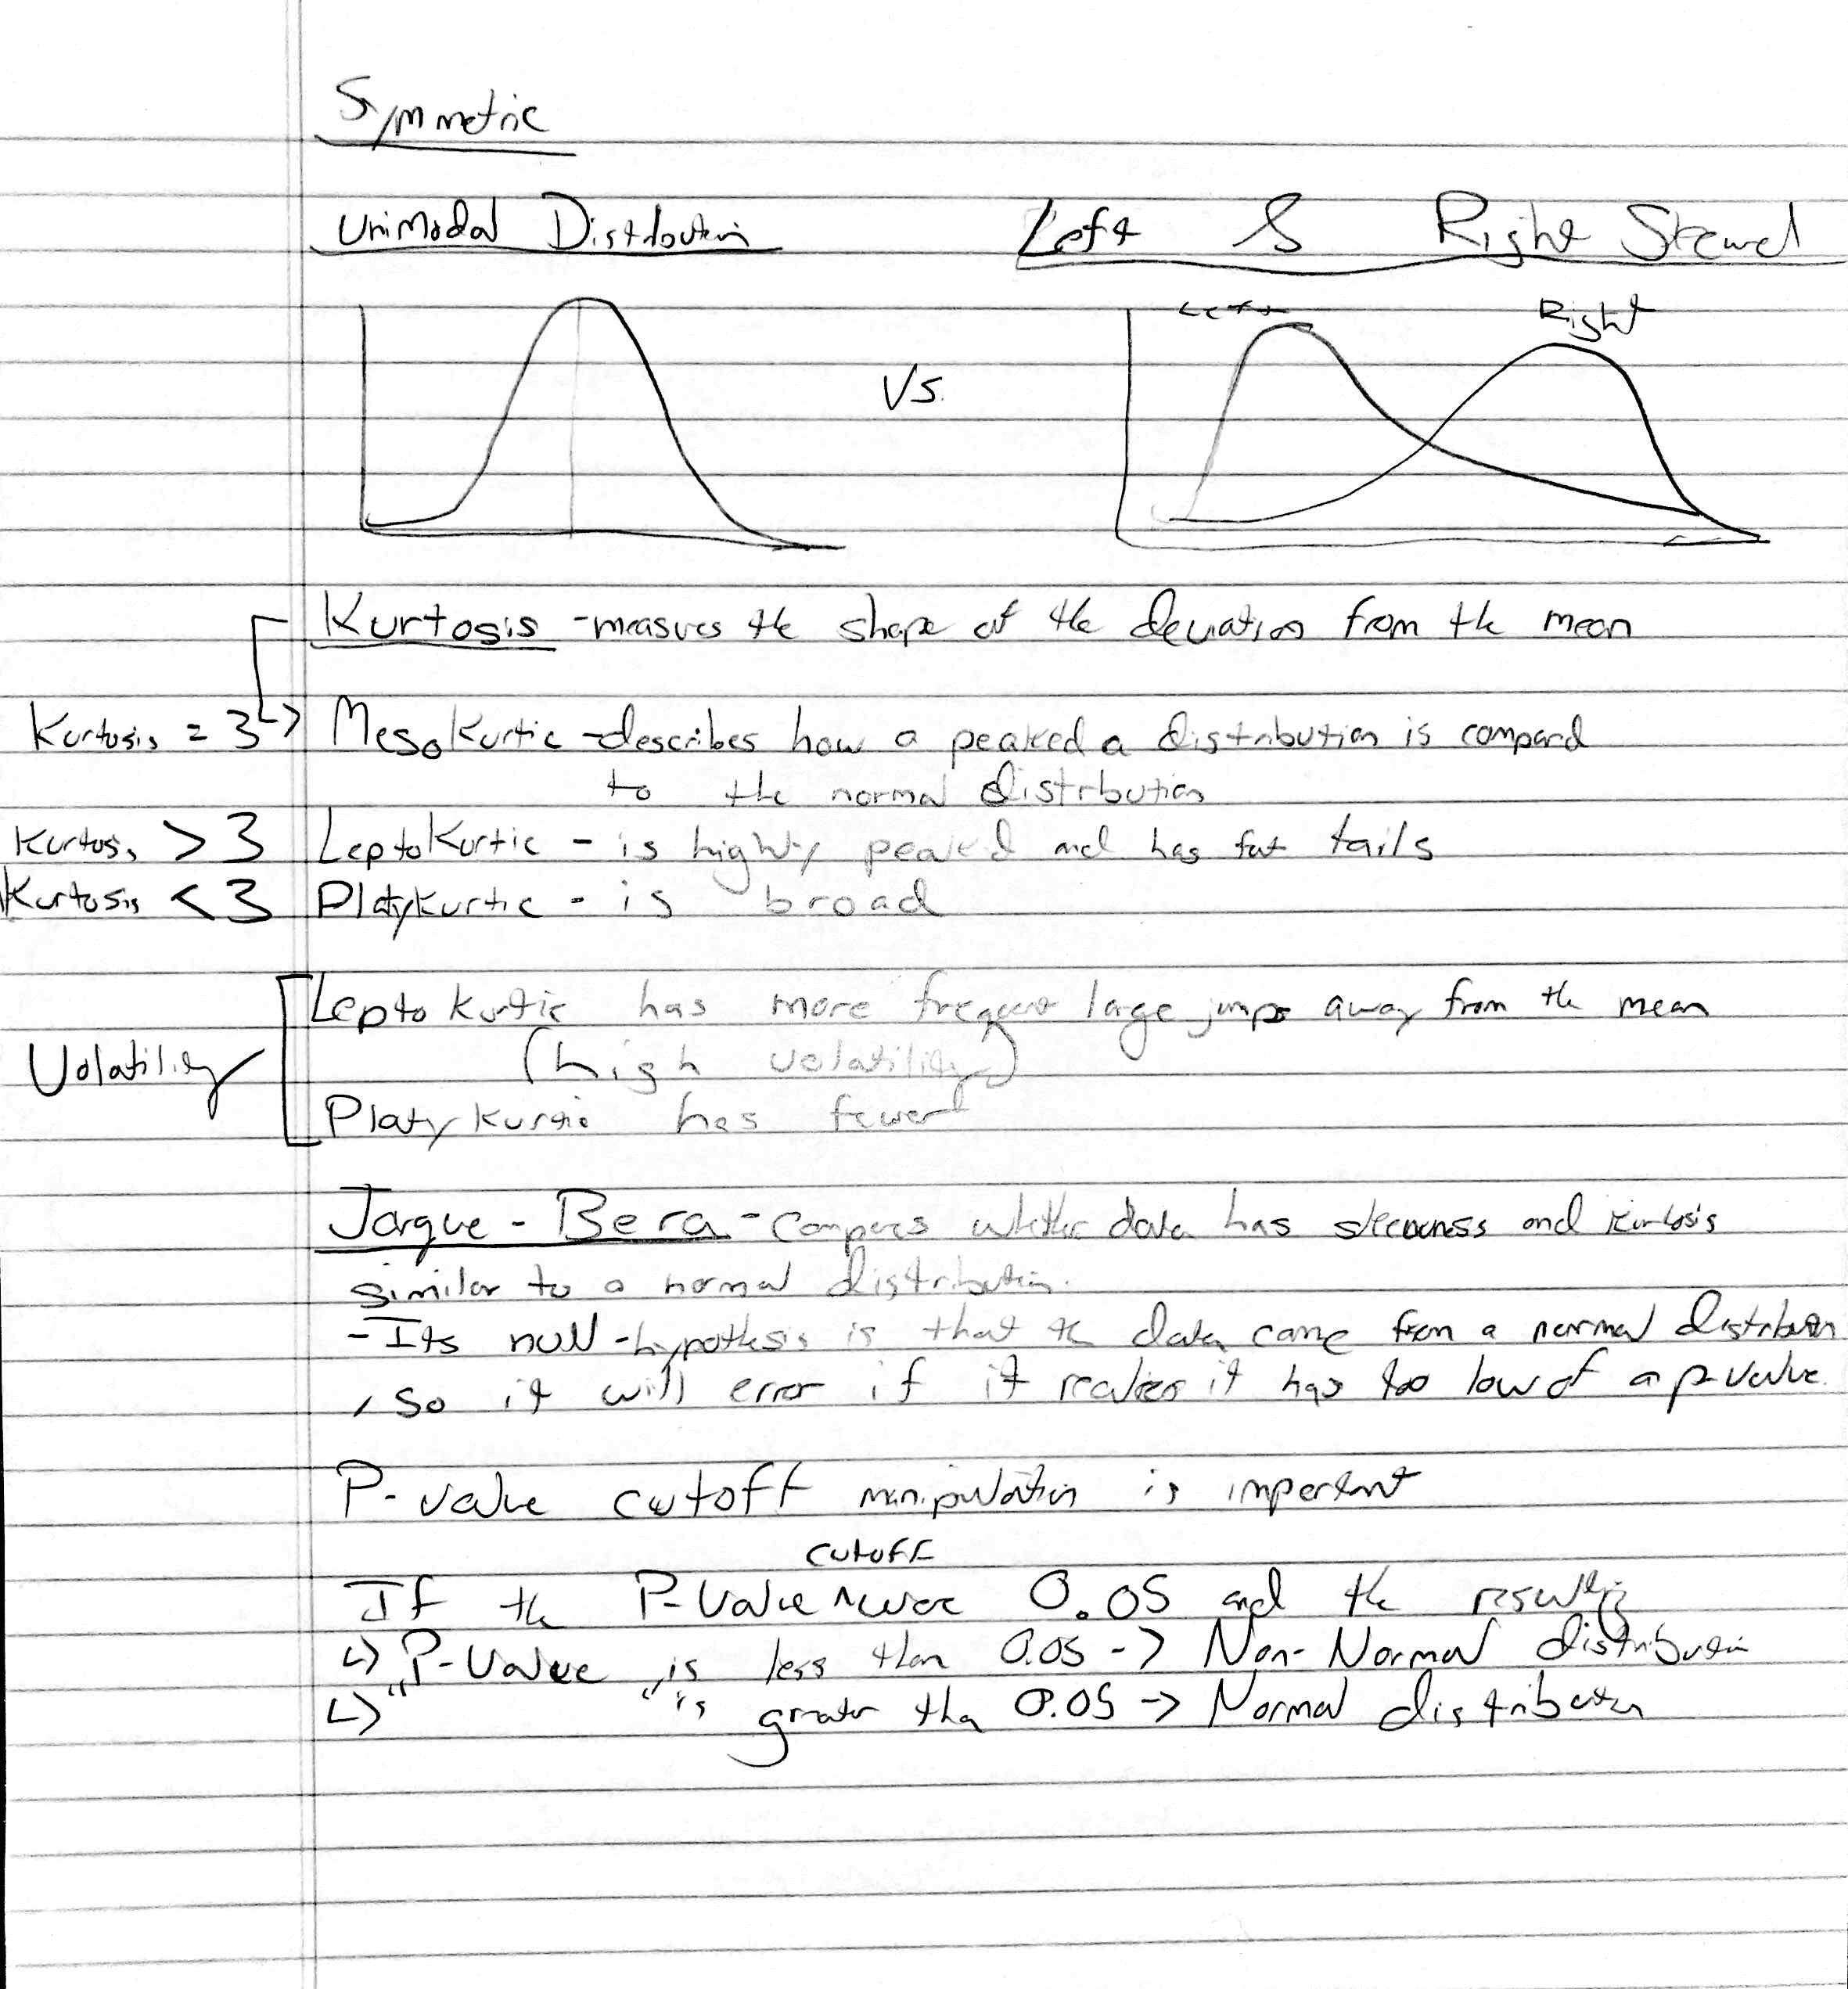 Symmetric
Unimodal Distribution
Left & Right Skewed
Left
Right
Vs.
Kurtosis - measures the shape of the deviation from the mean
Kurtosis = 3 Mesokurtic - describes how a peaked a distribution is compard
to the normal distribution
Kurtosis > 3 Leptokurtic - is highly peaked and has fat tails
Kurtosis < 3 Platykurtic - is broad
Leptokurtic has more frequent large jumps away from the mean
(high volatility)
Volatility
Platykurtic has fewer
Jarque-Bera - compares whether data has skewness and kurtosis
similar to a normal distribution.
- Its null-hypothesis is that the data came from a normal distribution
, so it will error if it realizes it has too low of a p-value.
P-value cutoff manipulation is important
cutoff
If the P-value ^ were 0.05 and the resulting
↳ P-Value is less than 0.05 -> Non-Normal distribution
↳ " " is greater than 0.05 -> Normal distribution